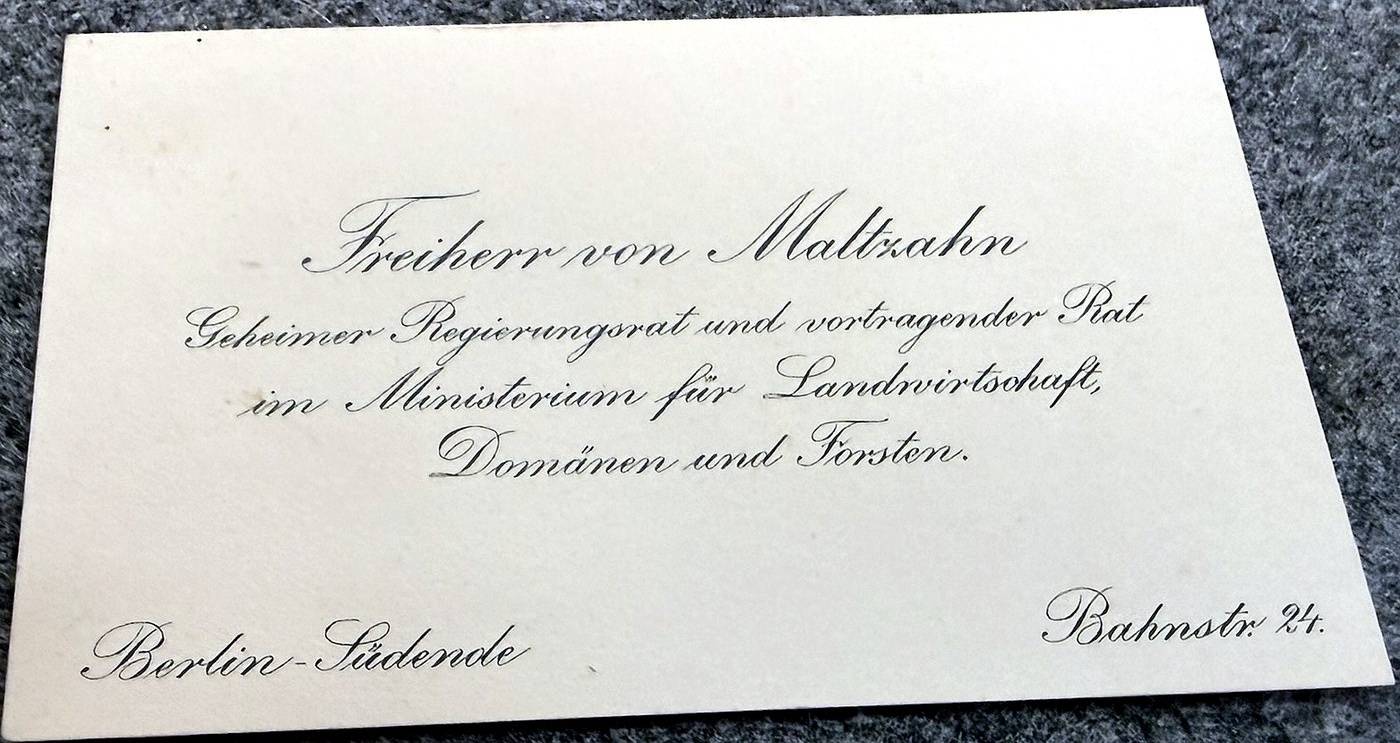 Freiherr von Maltzahn
Geheimer Regierungsrat und vortragender Rat
im Ministerium für Landwirtschaft,
Domänen und Forsten.
Berlin-Südende
Bahnstr. 24.